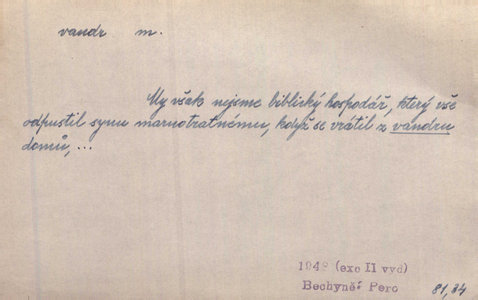 vandr m.
My však nejsme biblický hospodář, který vše
odpustil synu marnotratnému, když se vrátil z vandru
domů, ...
1948 (exc II vyd)
Bechyně: Pero 81,34